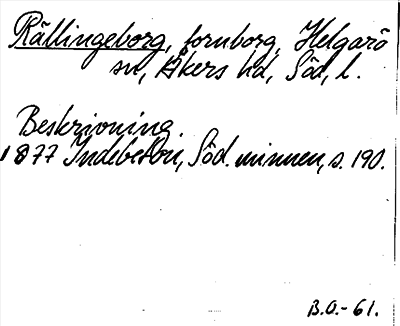 Rällingeborg, fornborg, Helgarö
sn, Åkers hd, Söd. l.
Beskrivning.
1877 Indebetou, Söd. minnen, s. 190.
B.O.-61.